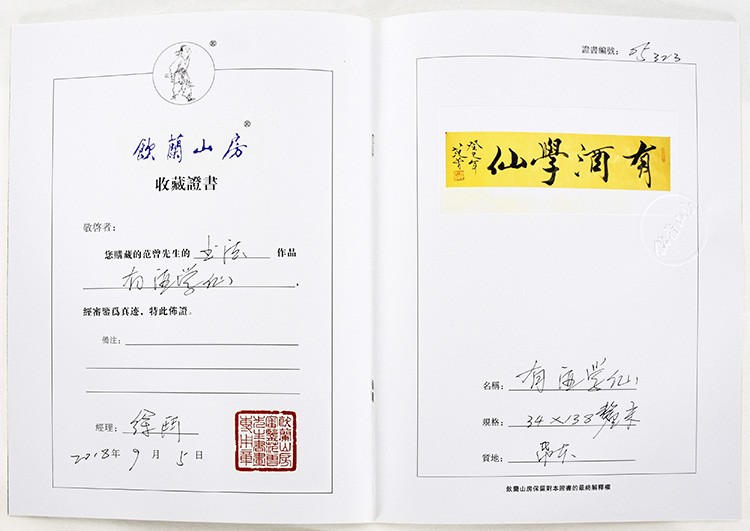 飲蘭山房
收藏證書
敬啓者：
您購藏的范曾先生的 书法 作品
有酒学仙 ，
經審鑒爲真迹，特此佈證。
備注：
經理：徐
2018年 9 月 5 日
證書編號： 5323
有酒學仙
癸巳年
范曾
名稱：有酒学仙
規格：34×138 釐米
質地：
飲蘭山房保留對本證書的最終解釋權